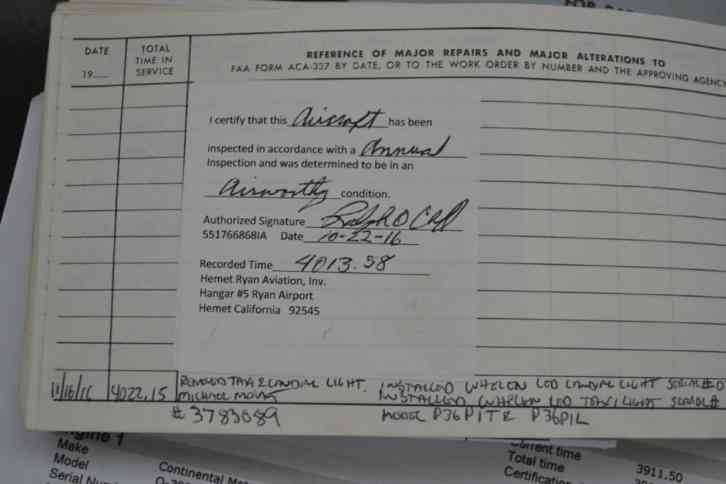 FOR
DATE
19
TOTAL
TIME IN
SERVICE
REFERENCE OF MAJOR REPAIRS AND MAJOR ALTERATIONS TO
FAA FORM ACA-337 BY DATE, OR TO THE WORK ORDER BY NUMBER AND THE APPROVING AGENCY
I certify that this Aircraft has been
inspected in accordance with a Annual
Inspection and was determined to be in an
Airworthy condition.
Authorized Signature
551766868IA Date 10-22-16
Recorded Time 4013.58
Hemet Ryan Aviation, Inv.
Hangar #5 Ryan Airport
Hemet California 92545
11/16/16 4022.15 REMOVED TAXI & LANDING LIGHT. INSTALLED WHELEN LED LANDING LIGHT SERIAL#
MICHAEL INSTALLED WHELEN LED TAXI LIGHT SERIAL#
# 3783089 MODEL P36P1TR P36P1L
Engine 1
Make
Model
Serial Num
Continental
Current time
Total time
3911.50
3911